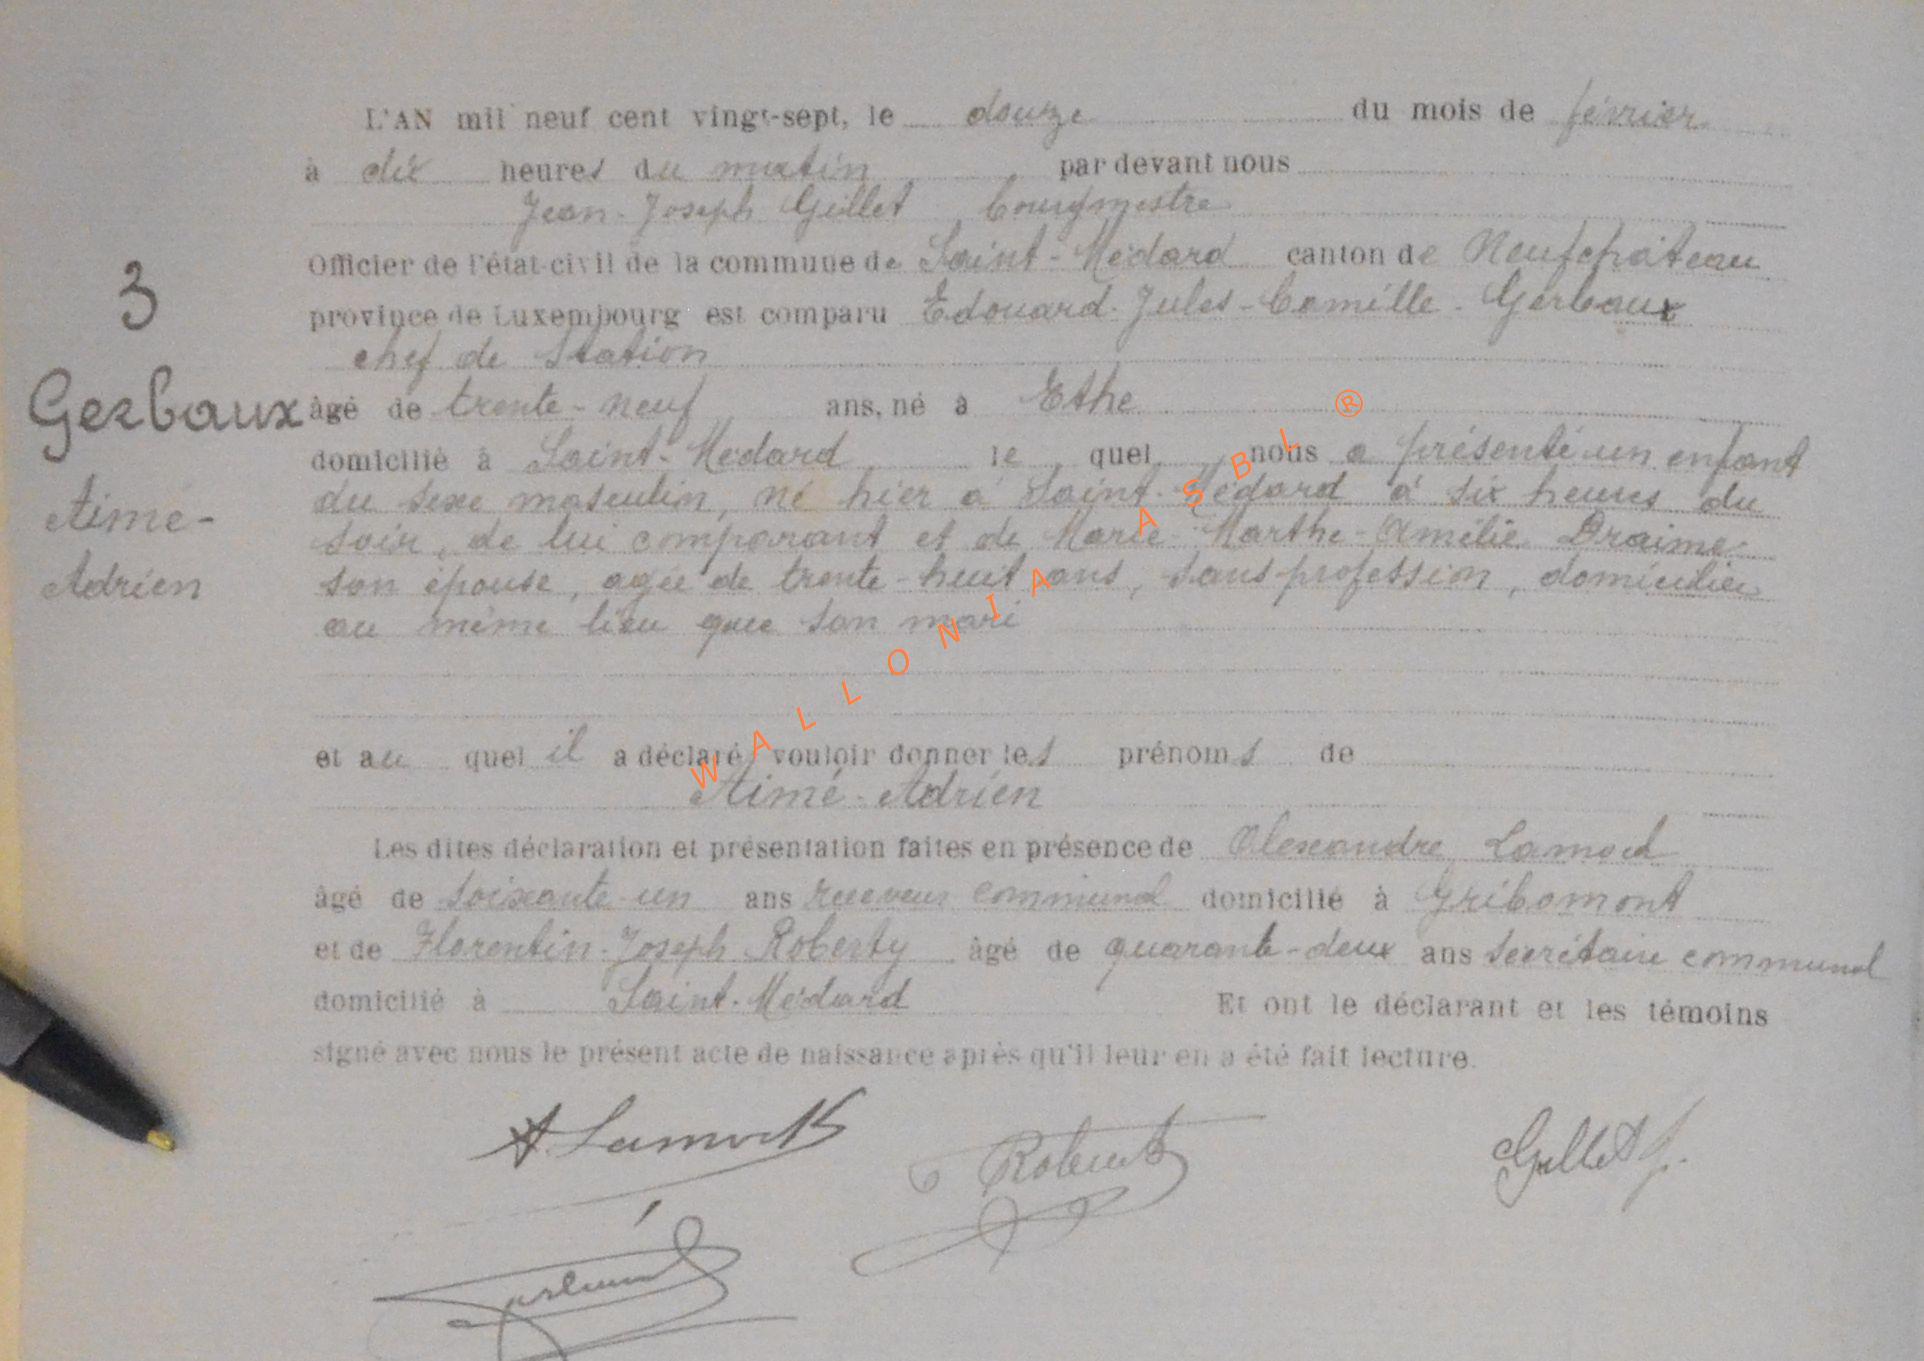 L'AN mil neuf cent vingt-sept, le douze du mois de février
à dix heures du matin par devant nous
Jean-Joseph Gillet bourgmestre
Officier de l'état-civil de la commune de Saint-Médard canton de Neufchâteau
3
province de Luxembourg est comparu Edouard-Jules-Camille-Gerbaux
chef de station
Gerbaux
âgé de trente-neuf ans, né à Ethe
domicilié à Saint-Médard le quel nous a présenté un enfant
Aimé-
du sexe masculin, né hier à Saint-Médard à six heures du
soir, de lui comparant et de Marie-Marthe-Amélie Draime
Adrien
son épouse, agée de trente-huit ans, sans profession, domiciliée
au même lieu que son mari
et au quel il a déclaré vouloir donner les prénoms de
Aimé-Adrien
Les dites déclaration et présentation faites en présence de Alexandre
âgé de soixante-un ans receveur communal domicilié à Gribomont
et de Florentin-Joseph Roberty âgé de quarante-deux ans secrétaire communal
domicilié à Saint-Médard Et ont le déclarant et les témoins
signé avec nous le présent acte de naissance après qu'il leur en a été fait lecture.
Gillet J.
WALLONIA ASBL ®